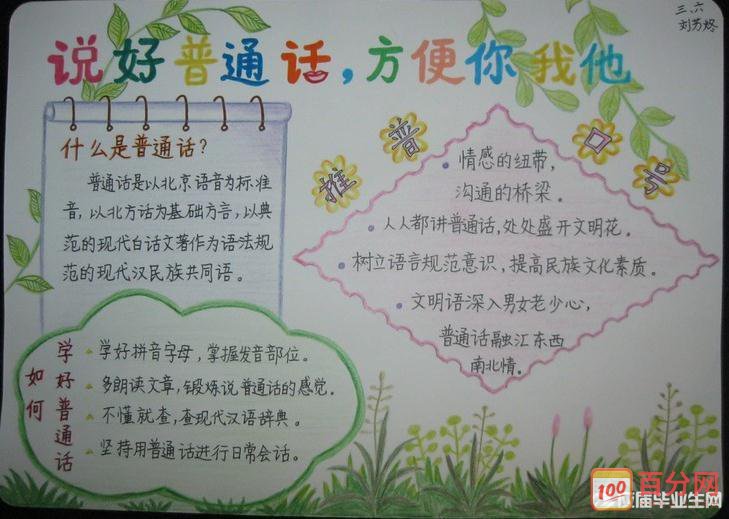 三、六
说好普通话，方便你我他
什么是普通话？
普通话是以北京语音为标准
音，以北方话为基础方言，以典
范的现代白话文著作为语法规
范的现代汉民族共同语。
推普口号
情感的纽带，
沟通的桥梁。
人人都讲普通话，处处盛开文明花。
树立语言规范意识，提高民族文化素质。
文明语深入男女老少心，
普通话融汇东西
南北情。
如何
学好普通话
学好拼音字母，掌握发音部位。
多朗读文章，锻炼说普通话的感觉。
不懂就查，查现代汉语辞典。
坚持用普通话进行日常会话。
100
百分网
届毕业生网